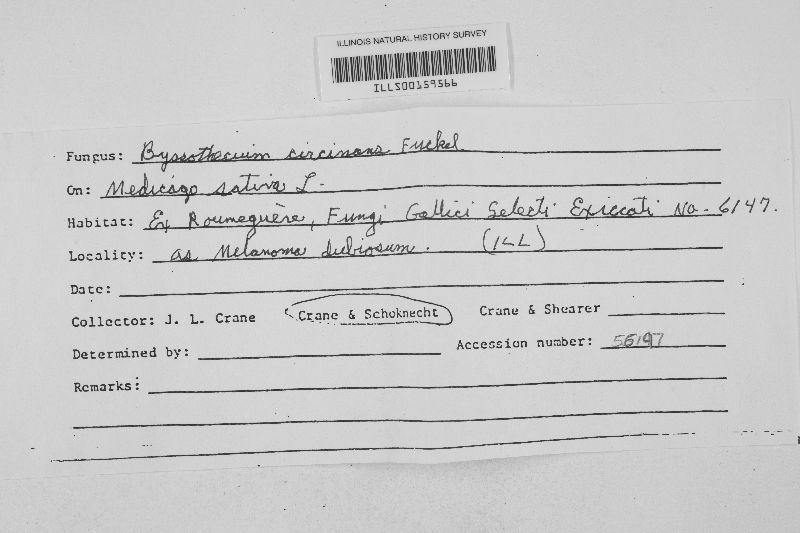 ILLINOIS NATURAL HISTORY SURVEY
ILLS00159566
Fungus: Byssothecium circinans Fuckel
On: Medicago sativa L.
Habitat: Ex Roumeguère, Fungi Gallici Selecti Exiccati No. 6147.
Locality: as Melanoma dubiosum. (ILL)
Date:
Collector: J. L. Crane Crane & Schoknecht Crane & Shearer
Determined by: Accession number: 56197
Remarks: